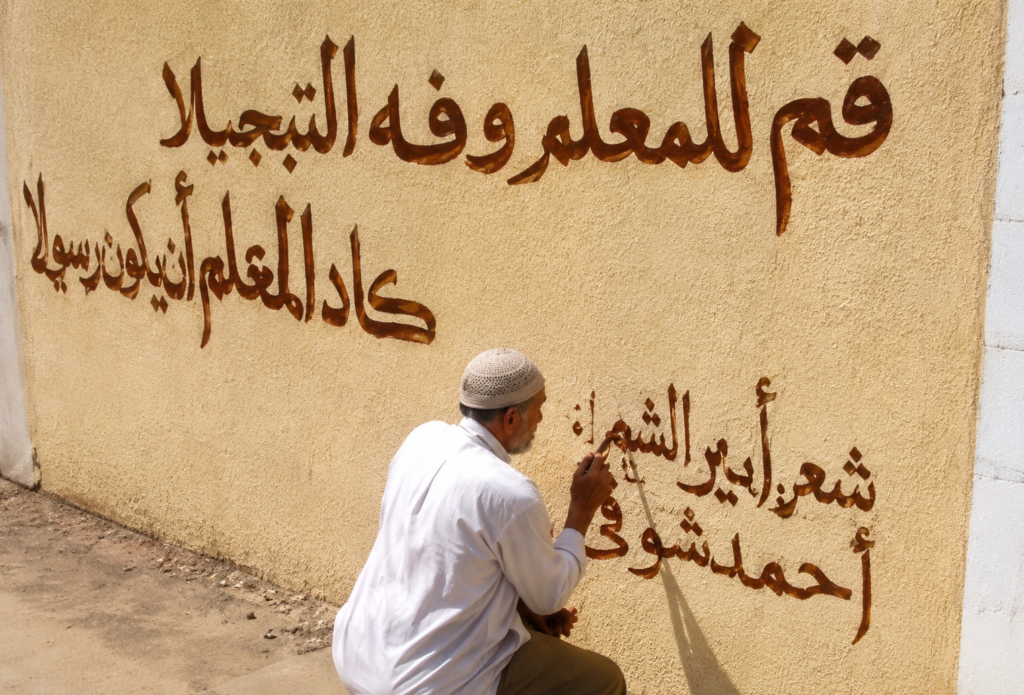 قم للمعلم وفه التبجيلا
كاد المعلم أن يكون رسولا
شعر أمير الشعراء
أحمد شوقي